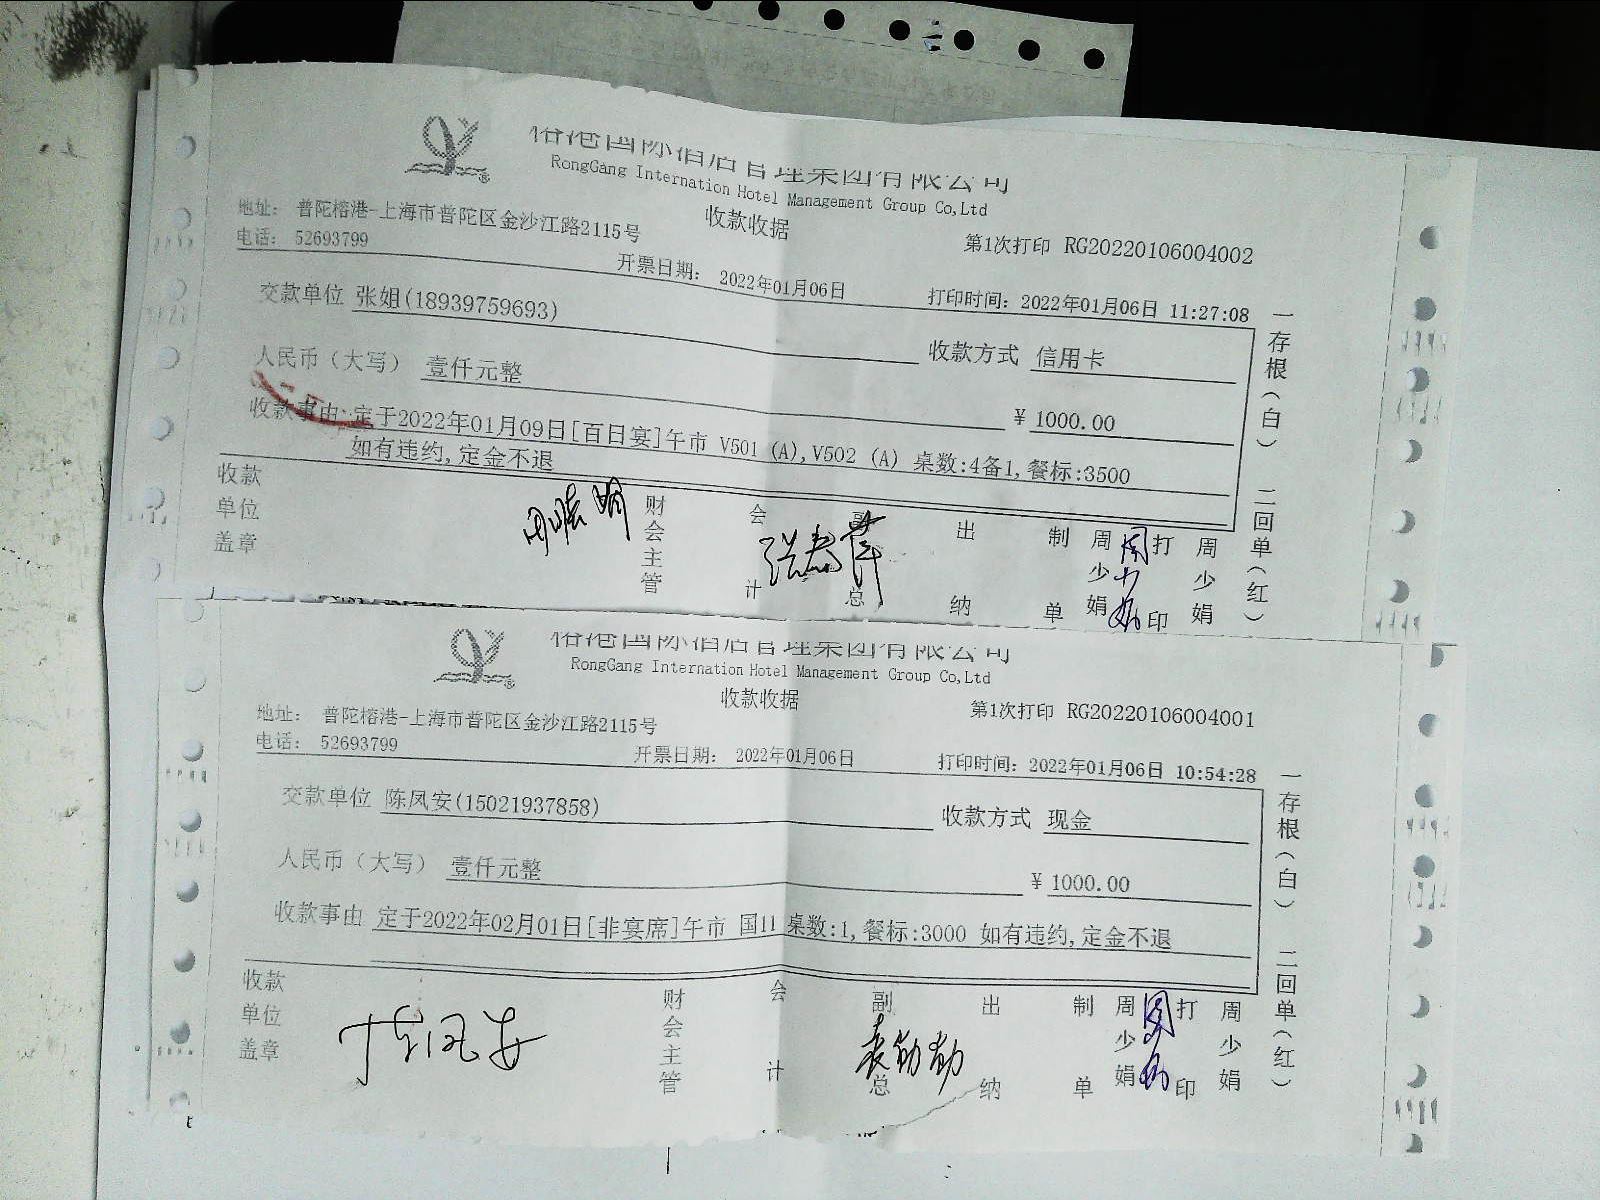 榕港国际酒店管理集团有限公司
RongGang Internation Hotel Management Group Co,Ltd
收款收据
地址： 普陀榕港-上海市普陀区金沙江路2115号
第1次打印 RG20220106004002
电话： 52693799
开票日期： 2022年01月06日
打印时间：2022年01月06日 11:27:08
交款单位 张姐(18939759693)
收款方式 信用卡
人民币（大写） 壹仟元整
￥1000.00
收款事由 定于2022年01月09日[百日宴]午市 V501 (A),V502 (A) 桌数:4备1,餐标:3500
如有违约,定金不退
收款单位盖章
财会主管
会计
副总
出纳
制单
周少娟
周少娟
打印
周少娟
一存根（白） 二回单（红）
榕港国际酒店管理集团有限公司
RongGang Internation Hotel Management Group Co,Ltd
收款收据
地址： 普陀榕港-上海市普陀区金沙江路2115号
第1次打印 RG20220106004001
电话： 52693799
开票日期： 2022年01月06日
打印时间：2022年01月06日 10:54:28
交款单位 陈凤安(15021937858)
收款方式 现金
人民币（大写） 壹仟元整
￥1000.00
收款事由 定于2022年02月01日[非宴席]午市 国11 桌数:1,餐标:3000 如有违约,定金不退
收款单位盖章
陈凤安
财会主管
会计
副总
袁勤勤
出纳
制单
周少娟
打印
周少娟
一存根（白） 二回单（红）